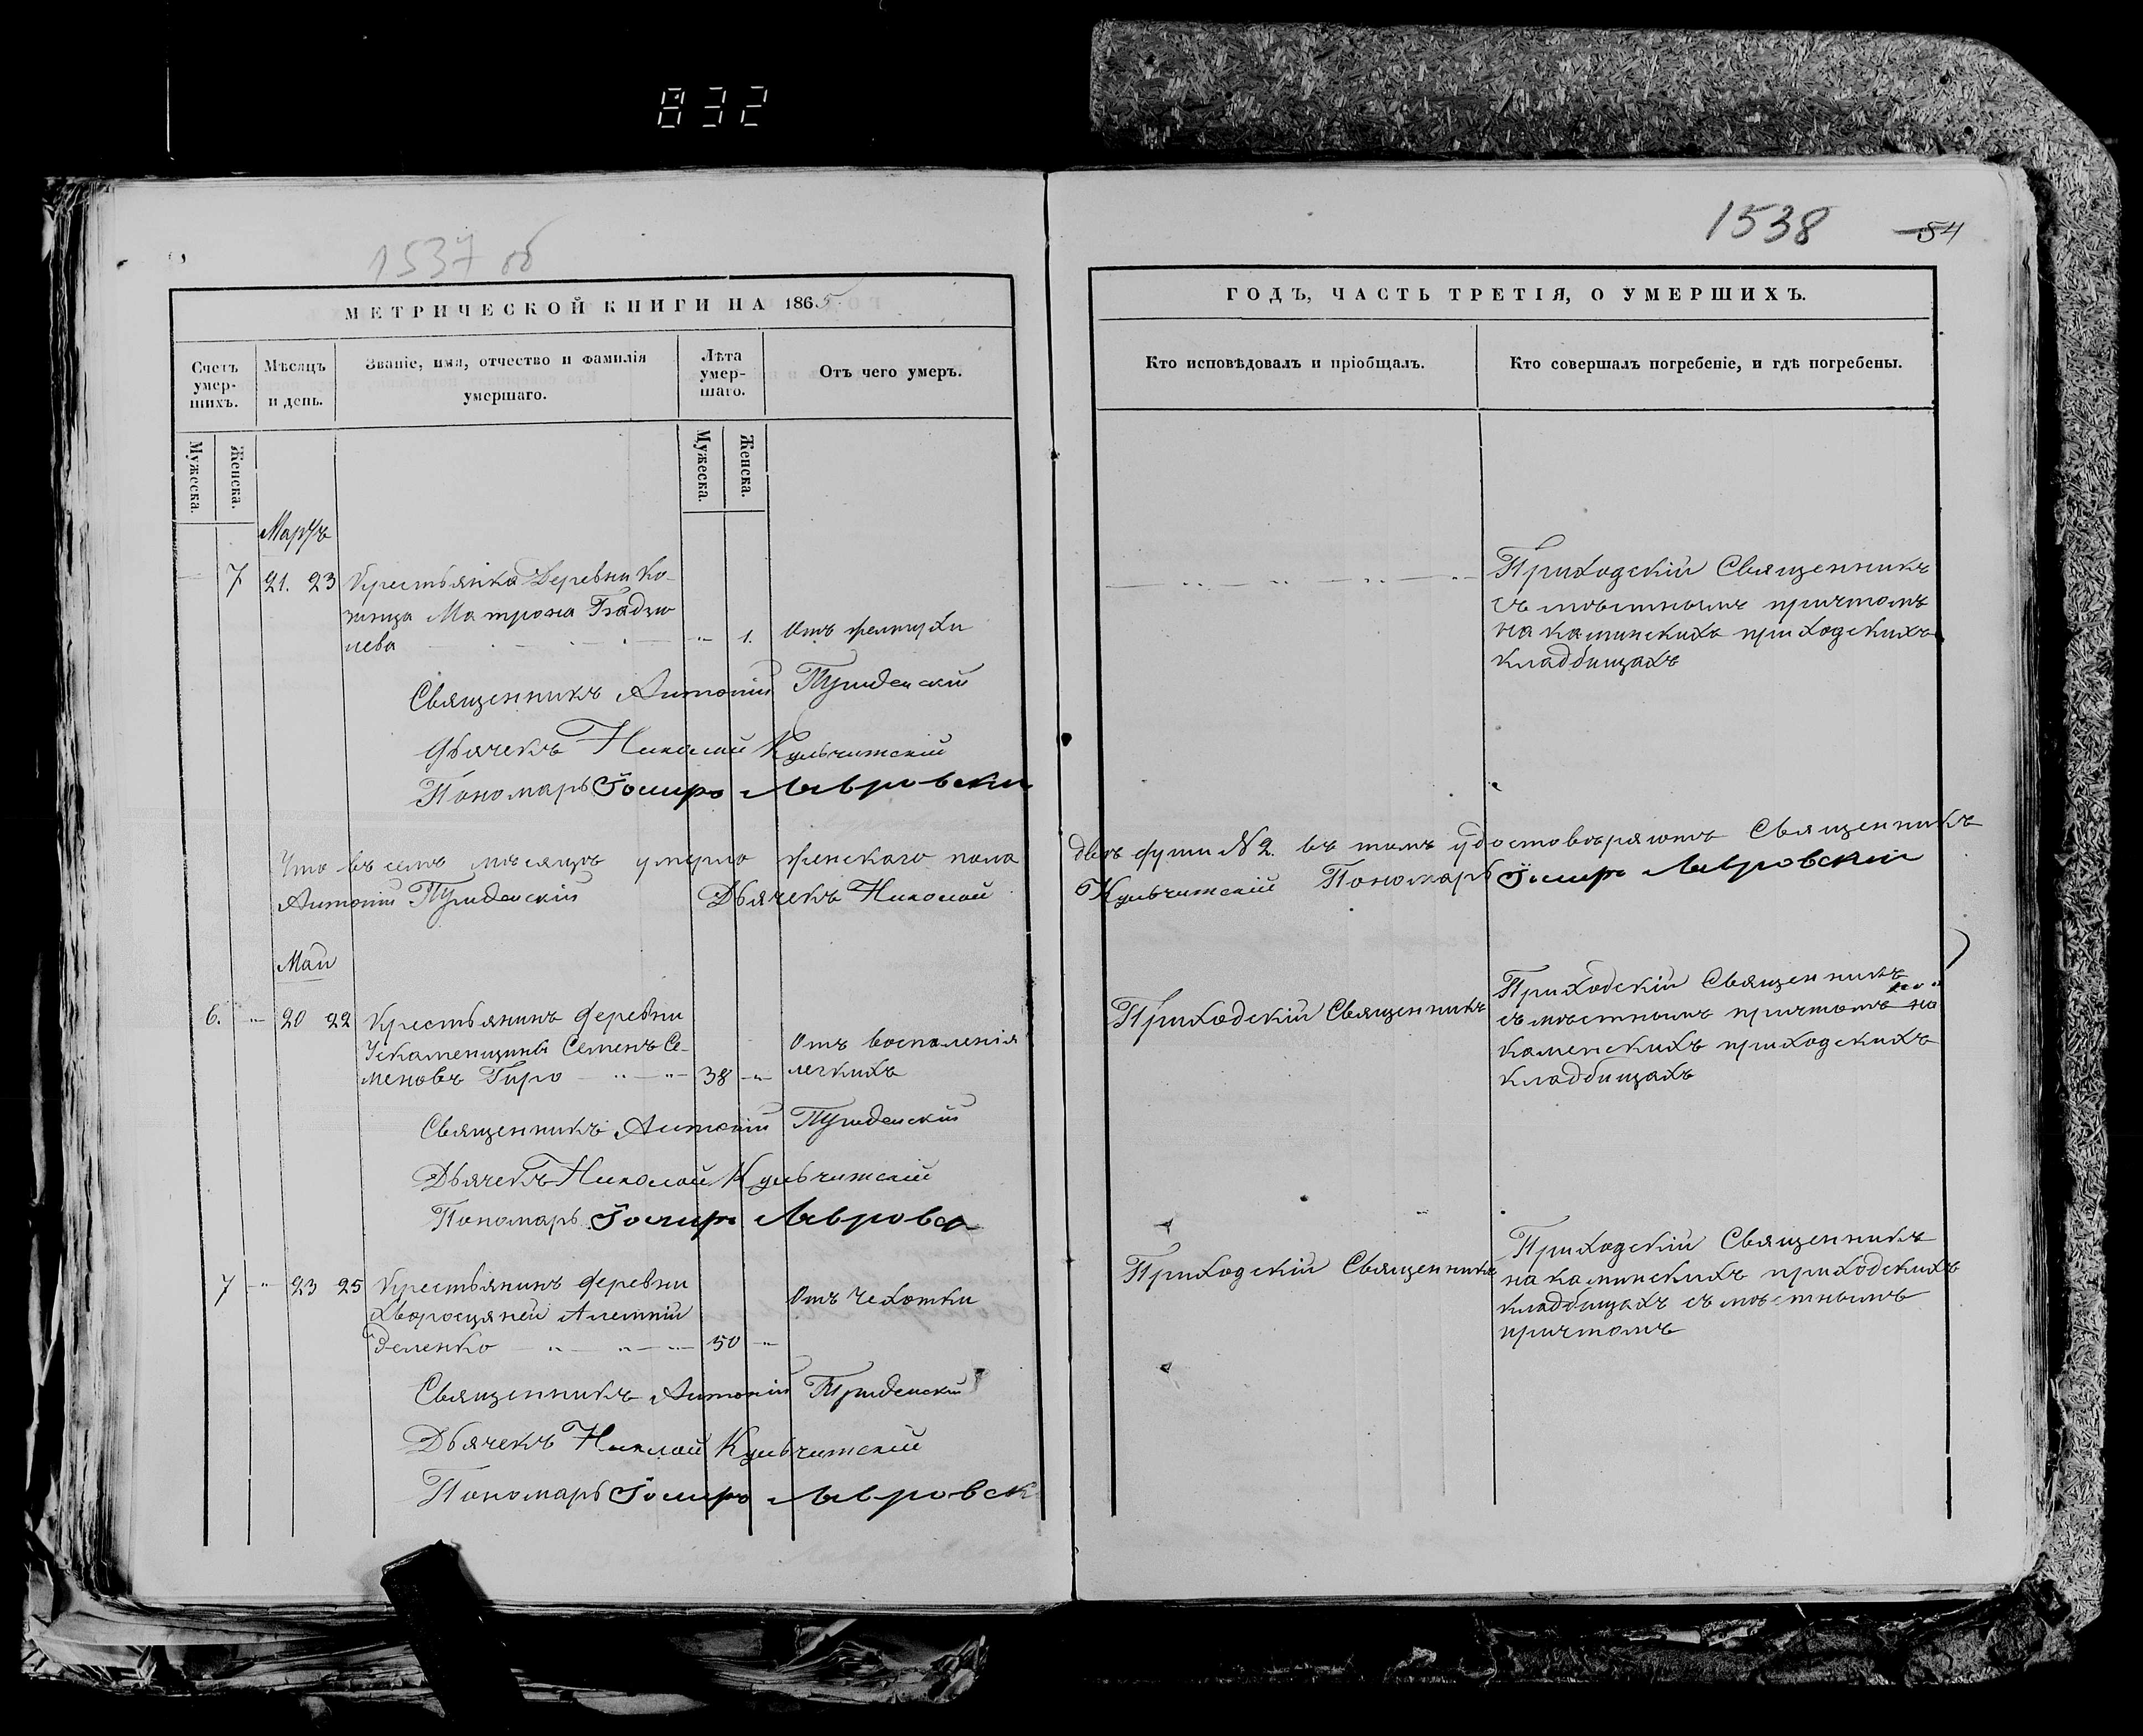 832
1537 об
1538
54
МЕТРИЧЕСКОЙ КНИГИ НА 1865
ГОДЪ, ЧАСТЬ ТРЕТІЯ, О УМЕРШИХЪ.
Счетъ умер-шихъ.
Мѣсяцъ и день.
Званіе, имя, отчество и фамилія умершаго.
Лѣта умер-шаго.
Отъ чего умеръ.
Кто исповѣдовалъ и пріобщалъ.
Кто совершалъ погребеніе, и гдѣ погребены.
Мужеска.
Женска.
Мужеска.
Женска.
Мартъ
7 21. 23 Крестьянка Деревни Ко-
Матрона
1. Отъ желтухи
Приходскій Священникъ
съ мѣстнымъ причтомъ
на каминскихъ приходскихъ
кладбищахъ
Священникъ Антоній
Дьячекъ Николай Кульчитскій
Пономарь Лавровскій
Что въ семъ мѣсяцѣ умерло женскаго пола
двѣ души № 2. въ томъ удостовѣряютъ Священникъ
Антоній Дьячекъ Николай
Кульчитскій Пономарь Лавровскій
Маи
6. 20 22 Крестьянинъ деревни
Семенъ Се-
меновъ Гиро 38
Отъ воспаленія
легкихъ
Приходскій Священникъ
Приходскій Священникъ
съ мѣстнымъ причтомъ на
каменскихъ приходскихъ
кладбищахъ
Священникъ Антоній
Дьячекъ Николай Кульчитскій
Пономарь Лавровск
7 23 25 Крестьянинъ деревни
50
Отъ Чехотки
Приходскій Священникъ
Приходскій Священникъ
на каминскихъ приходскихъ
кладбищахъ съ мѣстнымъ
причтомъ
Священникъ Антоній
Дьячекъ Николай Кульчитскій
Пономарь Лавровск